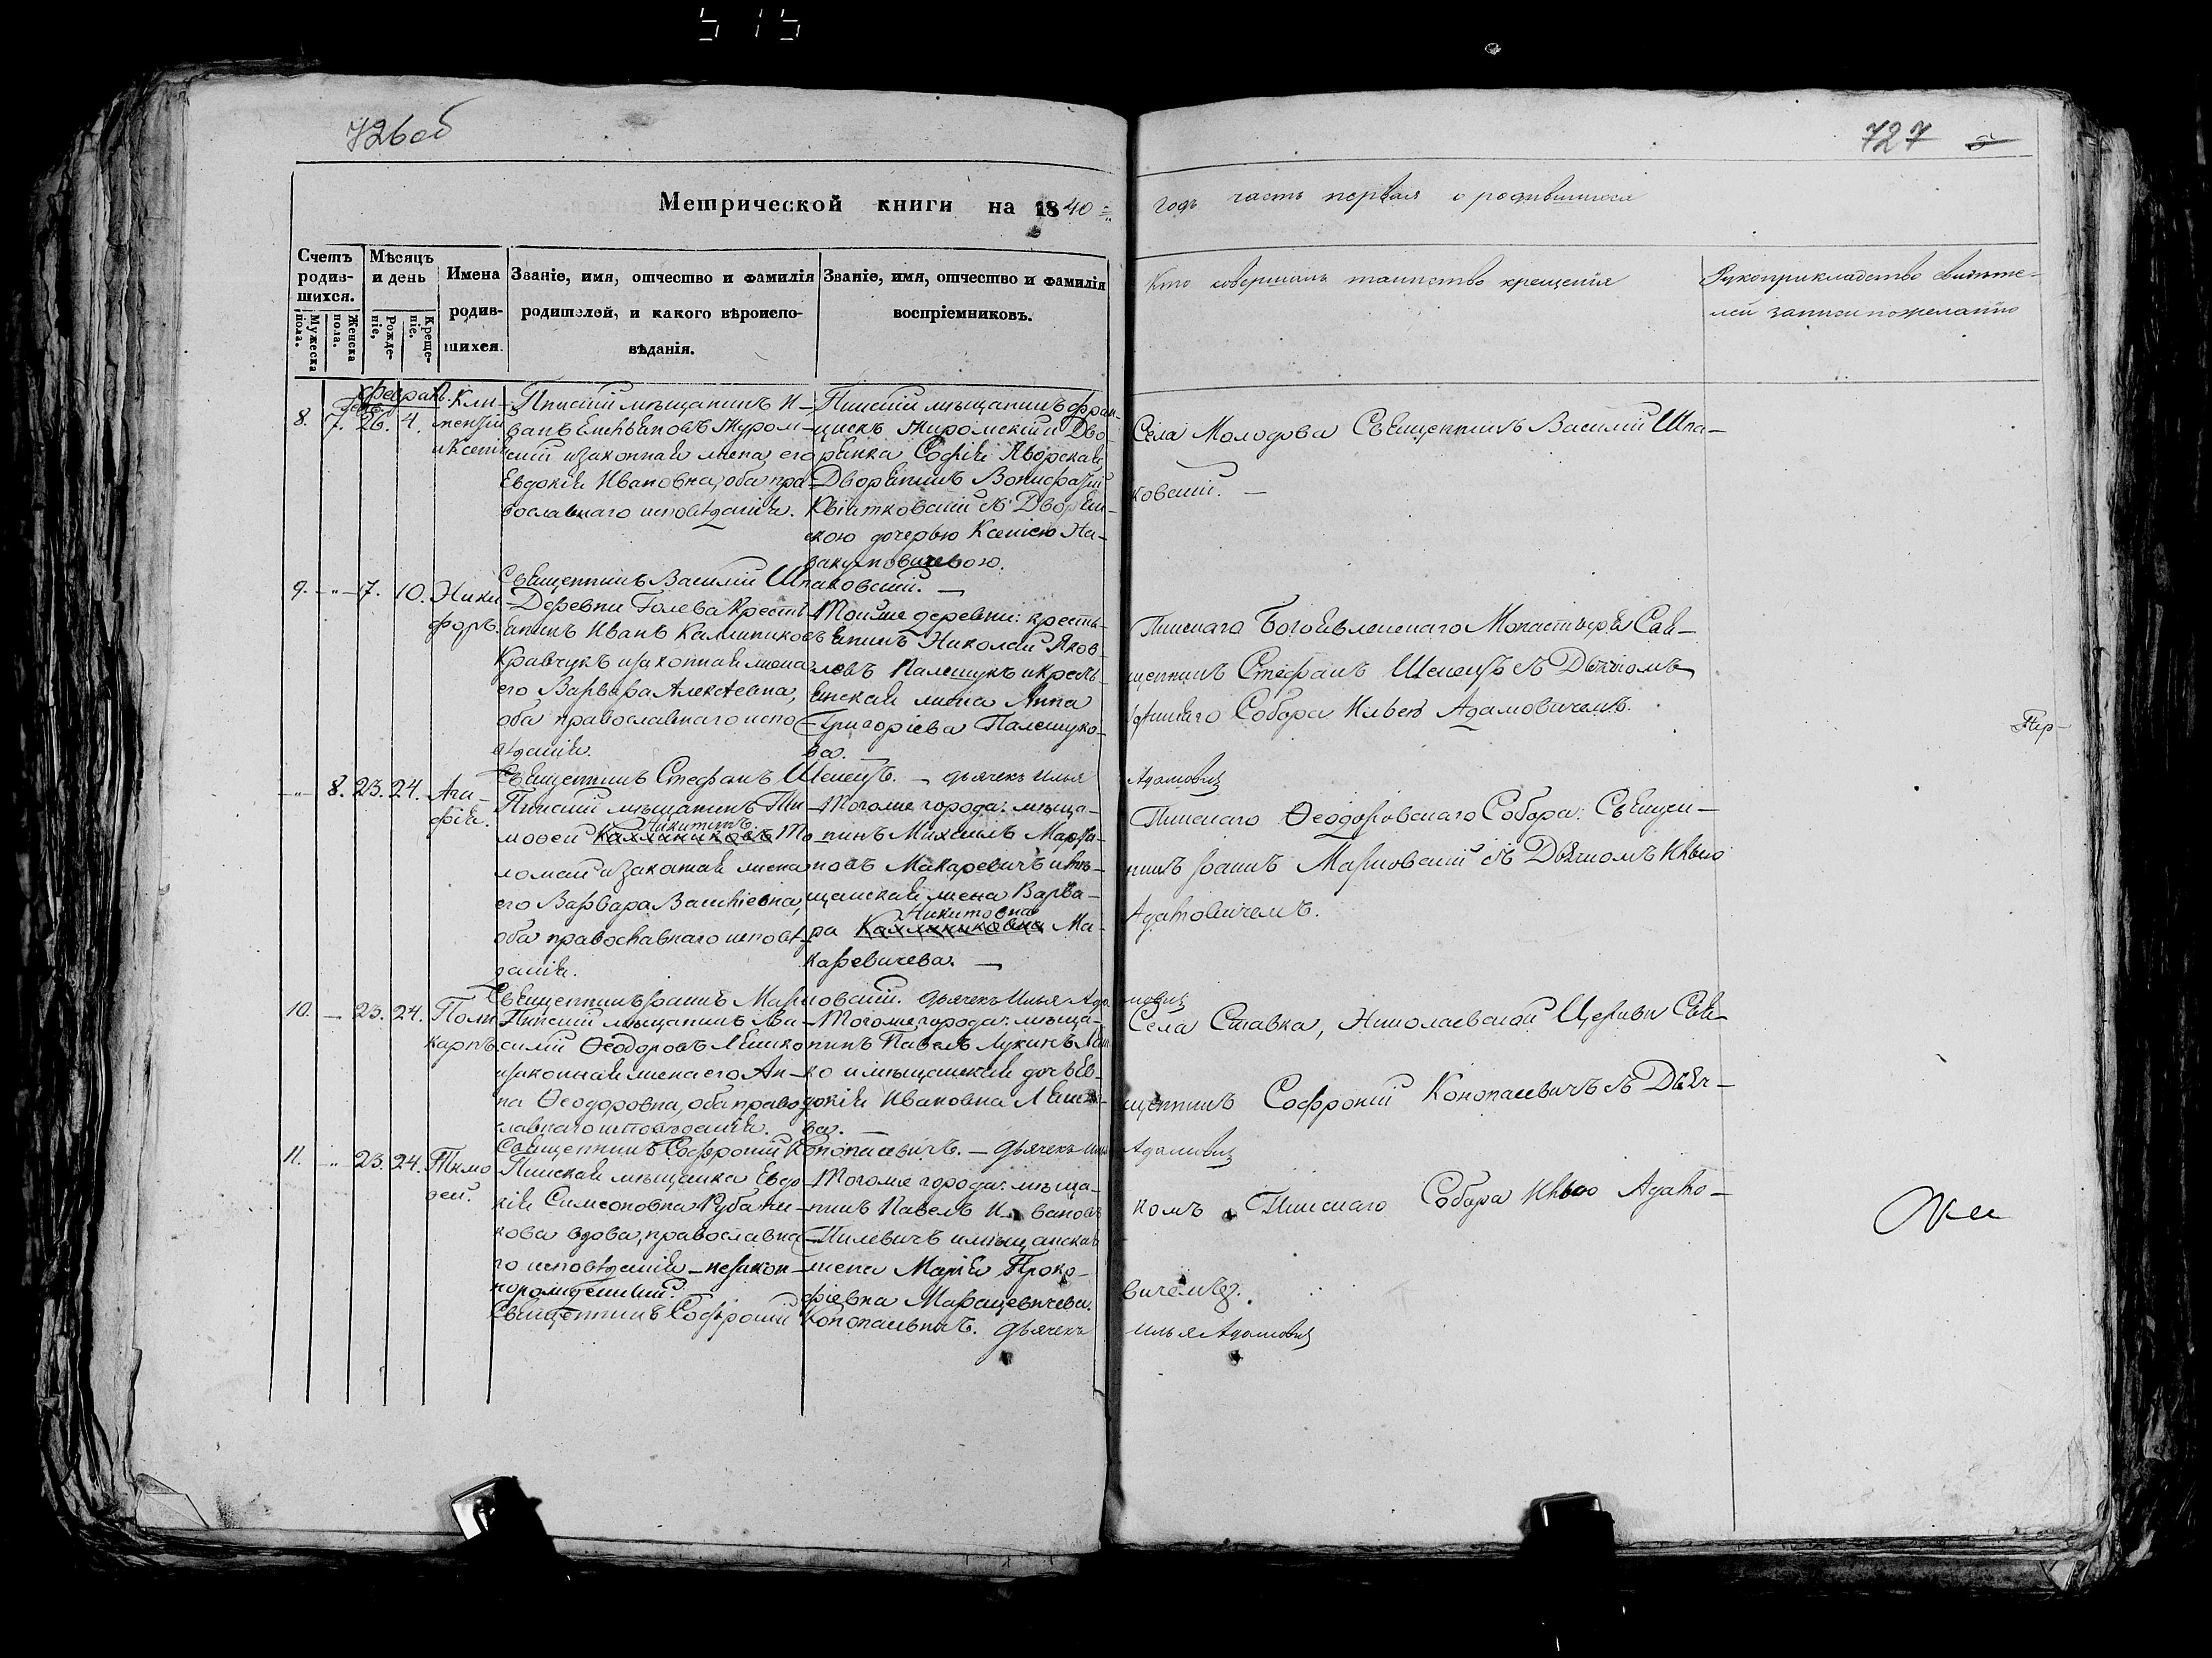 726 об
727
Метрической книги на 1840
годъ часть первая о родившихся
Счетъ родив-шихся.
Мужеска пола.
Женска пола.
Мѣсяцъ и день
Рожде-ніе.
Креще-ніе.
Имена родив-шихся.
Званіе, имя, отчество и фамилія
родителей, и какого вѣроиспо-
вѣданія.
Званіе, имя, отчество и фамилія
воспріемниковъ.
Кто совершалъ таинство крещенія
Рукоприкладство свидѣте-
лей записи по желанію
феврал.
8. 7. 26. 4.
Кли-
ментій
и Ксенія
Пинскій мѣщанинъ И-
ванъ Журом-
скій и законная жена его
Евдокія Ивановна, оба пра-
вославнаго исповѣданія.
Пинскій мѣщанинъ Фран-
цискъ Журомскій и Дво-
рянка Софія Яворская
Дворянинъ Вонифатій
Квятковскій съ Дворян-
скою дочерью Ксенією
Села Молодова Священникъ Василій Шпа-
ковскій. —
Священникъ Василій Шпаковскій. —
9. — " — 7. 10.
Ники-
форъ.
Деревни Голева Кресть-
янинъ Иванъ Калиниковъ
Кравчукъ и законная жена
его Варвара Алексѣевна,
оба православнаго испо-
вѣданія.
Той же деревни: кресть-
янинъ Николай Яков-
левъ Палешукъ и кресть-
янская жена Анна
Григоріева Палешуко-
ва. —
Пинскаго Богоявленскаго Монастыря Свя-
щенникъ Стефанъ Шелецъ съ Дьячкомъ
Пинскаго Собора Ильею Адамовичемъ.
Пер-
Священникъ Стефанъ Шелецъ. — дьячекъ Илья Адамовичъ
— " — 8. 23. 24.
Ага-
фія.
Пинскій мѣщанинъ Ти-
Никитинъ
моѳей Каллиниковъ То-
ломай и законная жена
его Варвара Василіевна,
оба православнаго исповѣ-
данія.
Тогоже города: мѣща-
нинъ Михаилъ Марти-
новъ Макаревичъ и мѣ-
щанская жена Варва-
Никитовна
ра Каллиниковна Ма-
каревичева. —
Пинскаго Ѳеодоровскаго Собора: Священ-
никъ Іоаннъ Марковскій съ Дьячкомъ Ильею
Адамовичемъ.
Священникъ Іоаннъ Марковскій. дьячекъ Илья Адамовичъ
10. — 23. 24.
Поли-
карпъ.
Пинскій мѣщанинъ Ва-
силій Ѳеодоровъ Лешко
и законная жена его Ан-
на Ѳеодоровна, оба право-
славнаго исповѣданія.
Тогоже города: мѣща-
нинъ Павелъ Лукинъ Леш-
ко и мѣщанская дочь Ев-
докія Ивановна Лешко-
ва. —
Села Ставка, Николаевской Церкви Свя-
щенникъ Софроній Конопасевичъ съ Дьяч-
Священникъ Софроній Конопасевичъ. — Дьячекъ Илья Адамовичъ
11. — " — 23. 24.
Тимо-
ѳей.
Пинская мѣщанка Евдо-
кія Симеоновна Рубани-
кова вдова, православна-
го исповѣданія — незакон-
норожденный.
Тогоже города: мѣща-
нинъ Павелъ Ивановъ
Пилевичъ и мѣщанская
жена Марія Проко-
фіевна Марацевичева.
комъ Пинскаго Собора Ильею Адамо-
вичемъ.
Священникъ Софроній Конопасевичъ. Дьячекъ Илья Адамовичъ